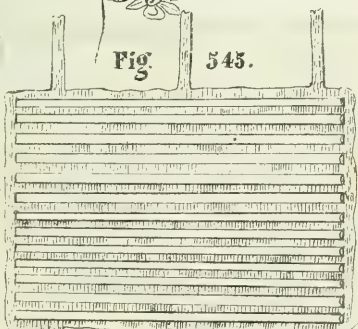 Fig 545.